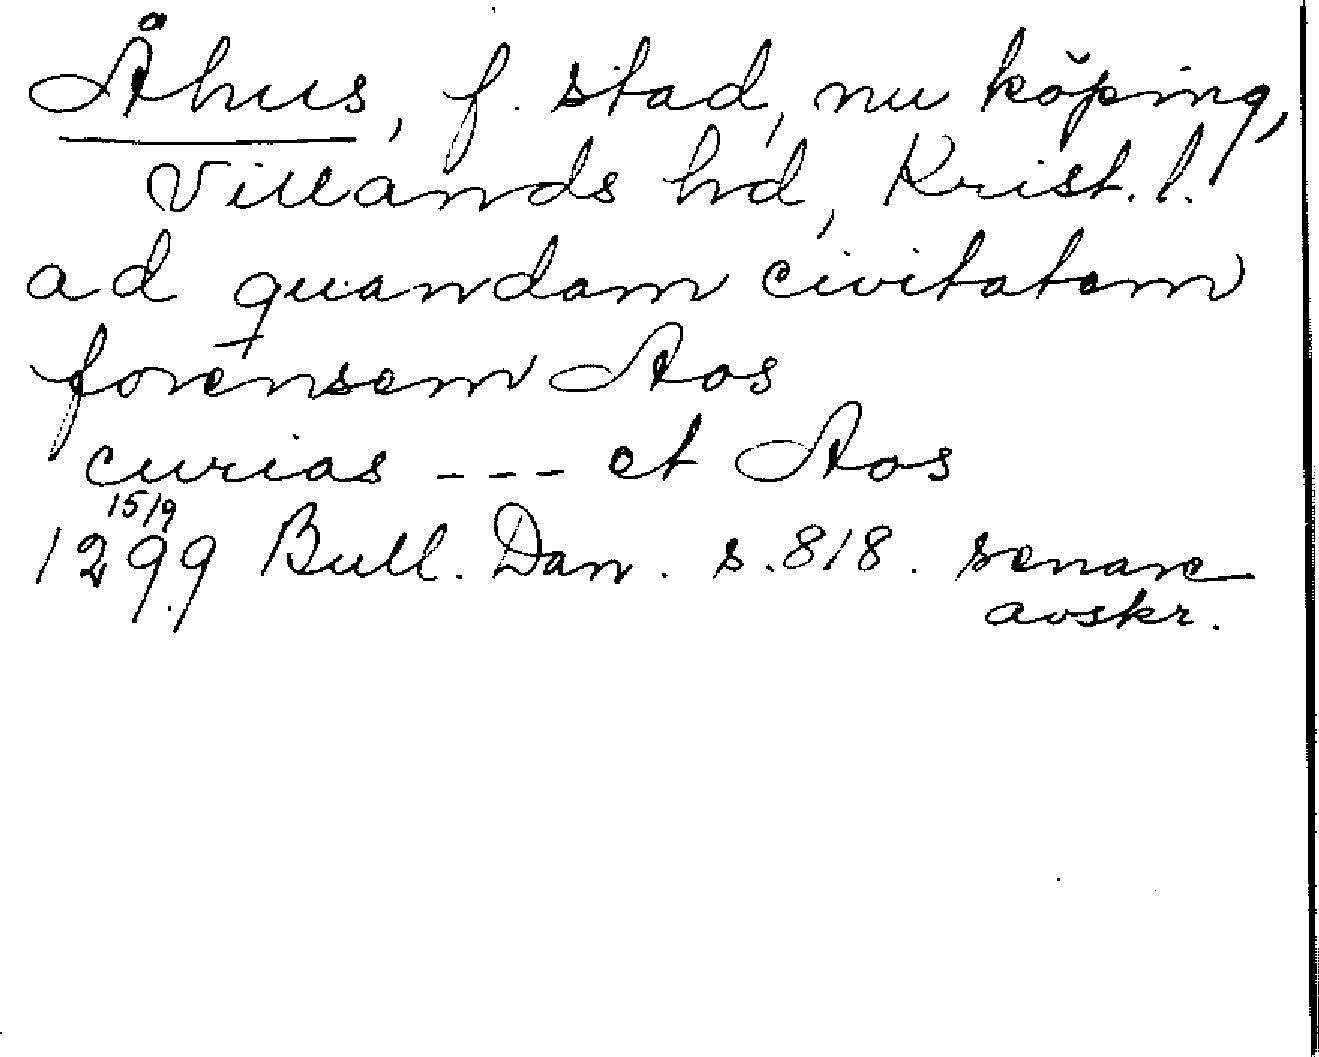 Åhus, f. stad, nu köping,
Villands hd, Krist. l.
ad quandam civitatem
forensem Aos
curias --- et Aos
15/9
1299 Bull. Dan. s. 818. senare
avskr.